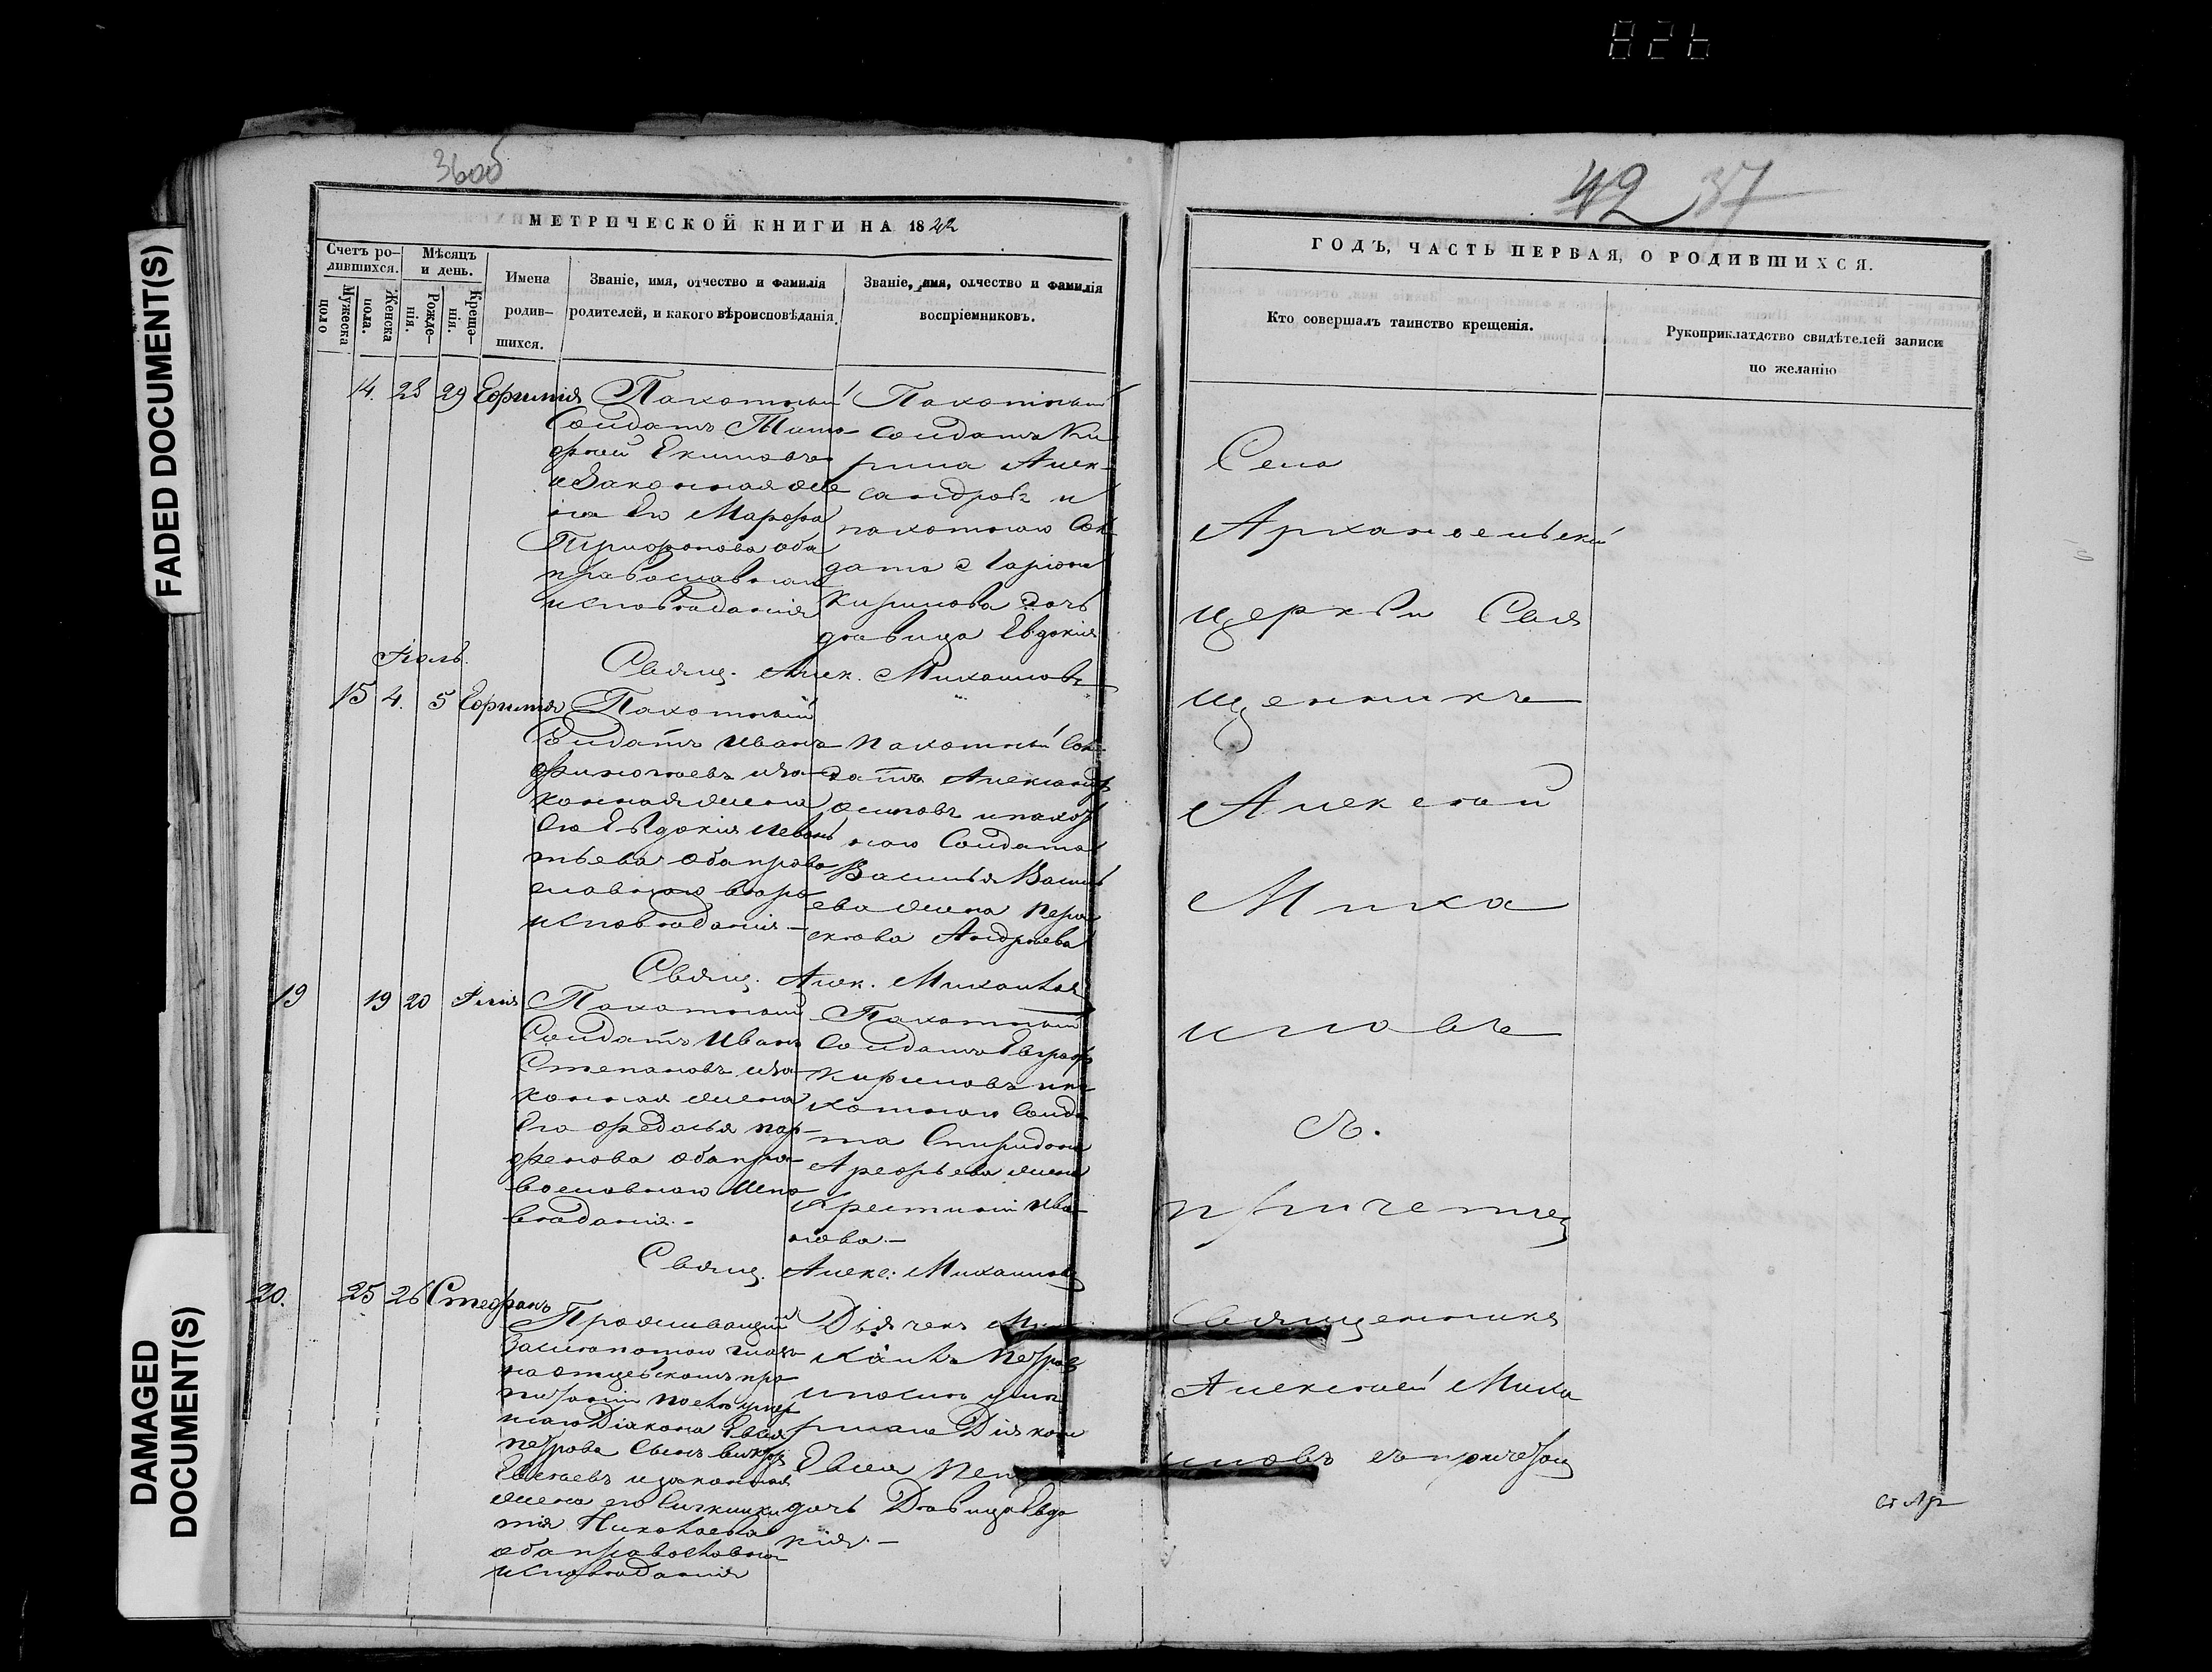 826
FADED DOCUMENT(S)
DAMAGED
DOCUMENT(S)
36об
МЕТРИЧЕСКОЙ КНИГИ НА 1842
Счетъ ро-
дившихся.
Мѣсяцъ
и день.
Мужеска
поло
Женска
пола.
Рожде-
нія.
Креще-
нія.
Имена
родив-
шихся.
Званіе, имя, отчество и фамилія
родителей, и какого вѣроисповѣданія.
Званіе, имя, отчество и фамилія
воспріемниковъ.
14. 28 29 Ефимія
Пахотный
Солдатъ Тимо-
фей Екимовъ
и Законная же
на Его Марфа
Трифонова оба
православнаго
исповѣданія
Пахотный
солдатъ Ки
рила Алек-
сандровъ и
пахотнаго Сол
дата Ларіона
Кирилова дочь
дѣвица Евдокія
Свящ. Алек. Михаиловъ
Іюль.
15 4. 5 Ефимія
Пахотный
Солдатъ Иванъ
и за-
конная жена
Его Евдокія
тьева оба право
славнаго вѣро
исповѣданія -
пахотный Сол-
датъ Александръ
Осиповъ и пахот
наго Солдата
Василья Василь
ева жена Пера
скева Андреева
Свящ. Алек. Михаиловъ
19 19 20 Илія
Пахотный
Солдатъ Иванъ
Степановъ и за-
конная жена
Его Федосья Пар-
фенова оба пра-
вославнаго испо
вѣданія. -
Пахотный
Солдатъ Евграфъ
Кириловъ и па
хотнаго Солда
та Спиридона
Арефьева жена
Ива-
нова. -
Свящ. Алекс: Михаиловъ
20. 25 26 Стефанъ
Проживающій
на отцевскомъ про
питаніи
Діакона
Петрова Сынъ
и законная
жена его
Николаева
оба православнаго
исповѣданія
Дьячекъ Ми
Петровъ
и умер
Діакона
дочь Дѣвица Евдо
кія. -
42 37
ГОДЪ, ЧАСТЬ ПЕРВАЯ, О РОДИВШИХСЯ.
Кто совершалъ таинство крещенія.
Рукоприклатдство свидѣтелей записи
по желанію
Села
Архангельскй
церкви Свя
щенникъ
Алексѣй
Миха
иловъ
съ.
причетнец
Священникъ
Алексѣй Миха
иловъ съ причетом